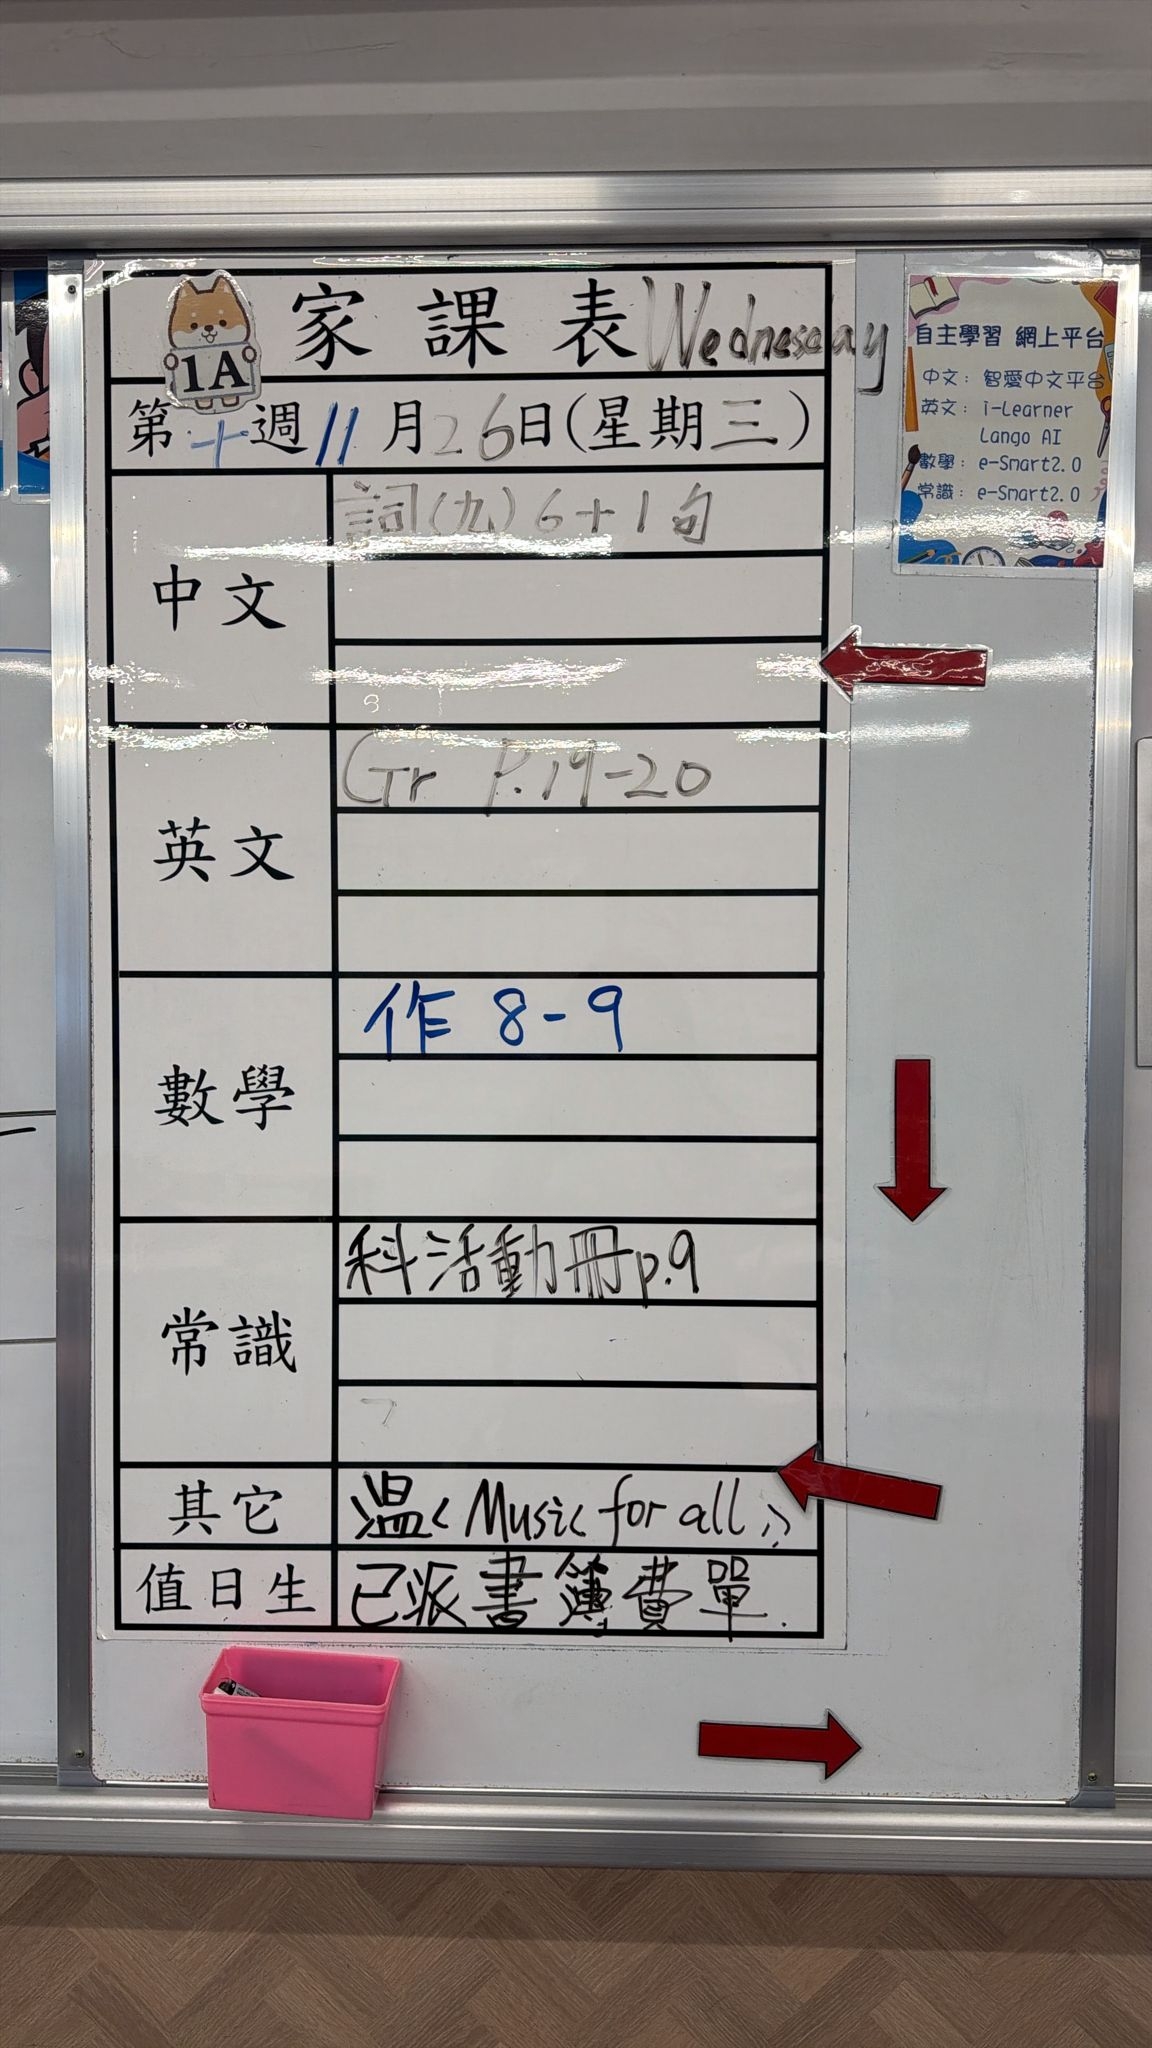 家課表 Wednesday
1A
第十週 11月26日(星期三)
中文
詞(九) 6+1句
英文
Gr P.19-20
數學
作 8-9
常識
科活動冊p.9
其它
溫《Music for all》
值日生
已派書簿費單.
自主學習 網上平台
中文：智愛中文平台
英文：i-Learner
Lango AI
數學：e-Smart2.0
常識：e-Smart2.0